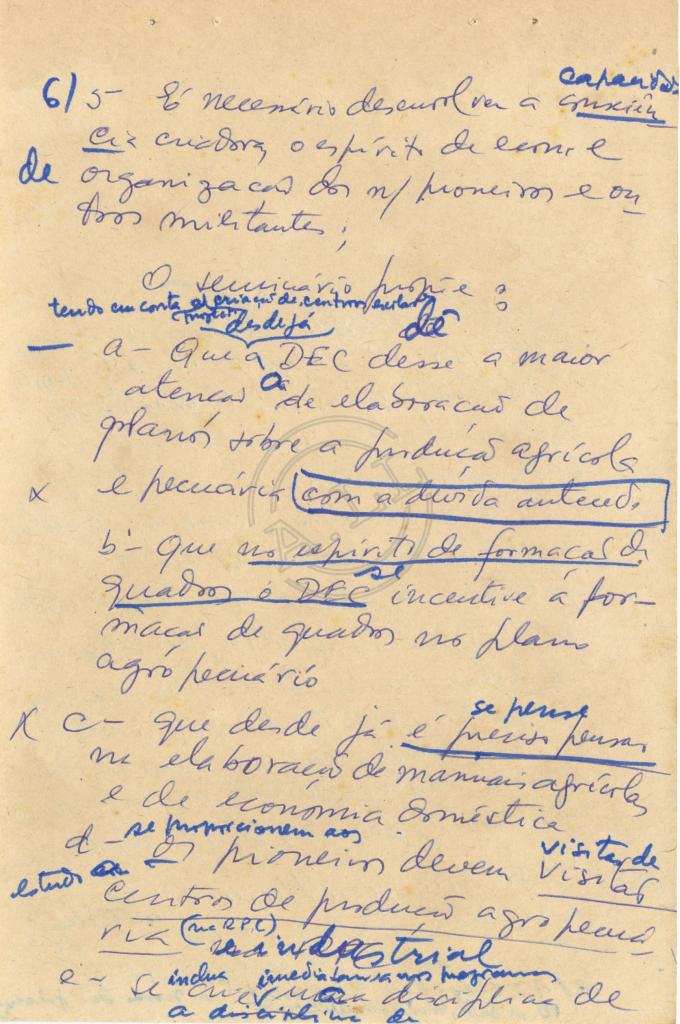 capacidade
6/ 5- É necessário desenvolver a consciên
cia criadora, o espírito de econ. e
de organização dos n/ pioneiros e ou-
tros militantes;
O seminário propõe:
tendo em conta a criação de centros escolares
desde já dê
a- Que a DEC desse a maior
atenção à de elaboração de
planos sobre a produção agrícola
x e pecuária com a devida anteced.
b- que no espírito de formação de
quadros o DEC se incentive à for-
mação de quadros no plano
agro pecuário
x c- que desde já é preciso pensar
se pense
na elaboração de manuais agrícolas
e de económia doméstica
se proporcionem aos
d- Os pioneiros devem visitar
visitas de
estudo a
centros de produção agro pecuá-
ria (na R.P.C)
e industrial
inclua imediatamente nos programas
e- se uma disciplina de
a disciplina de